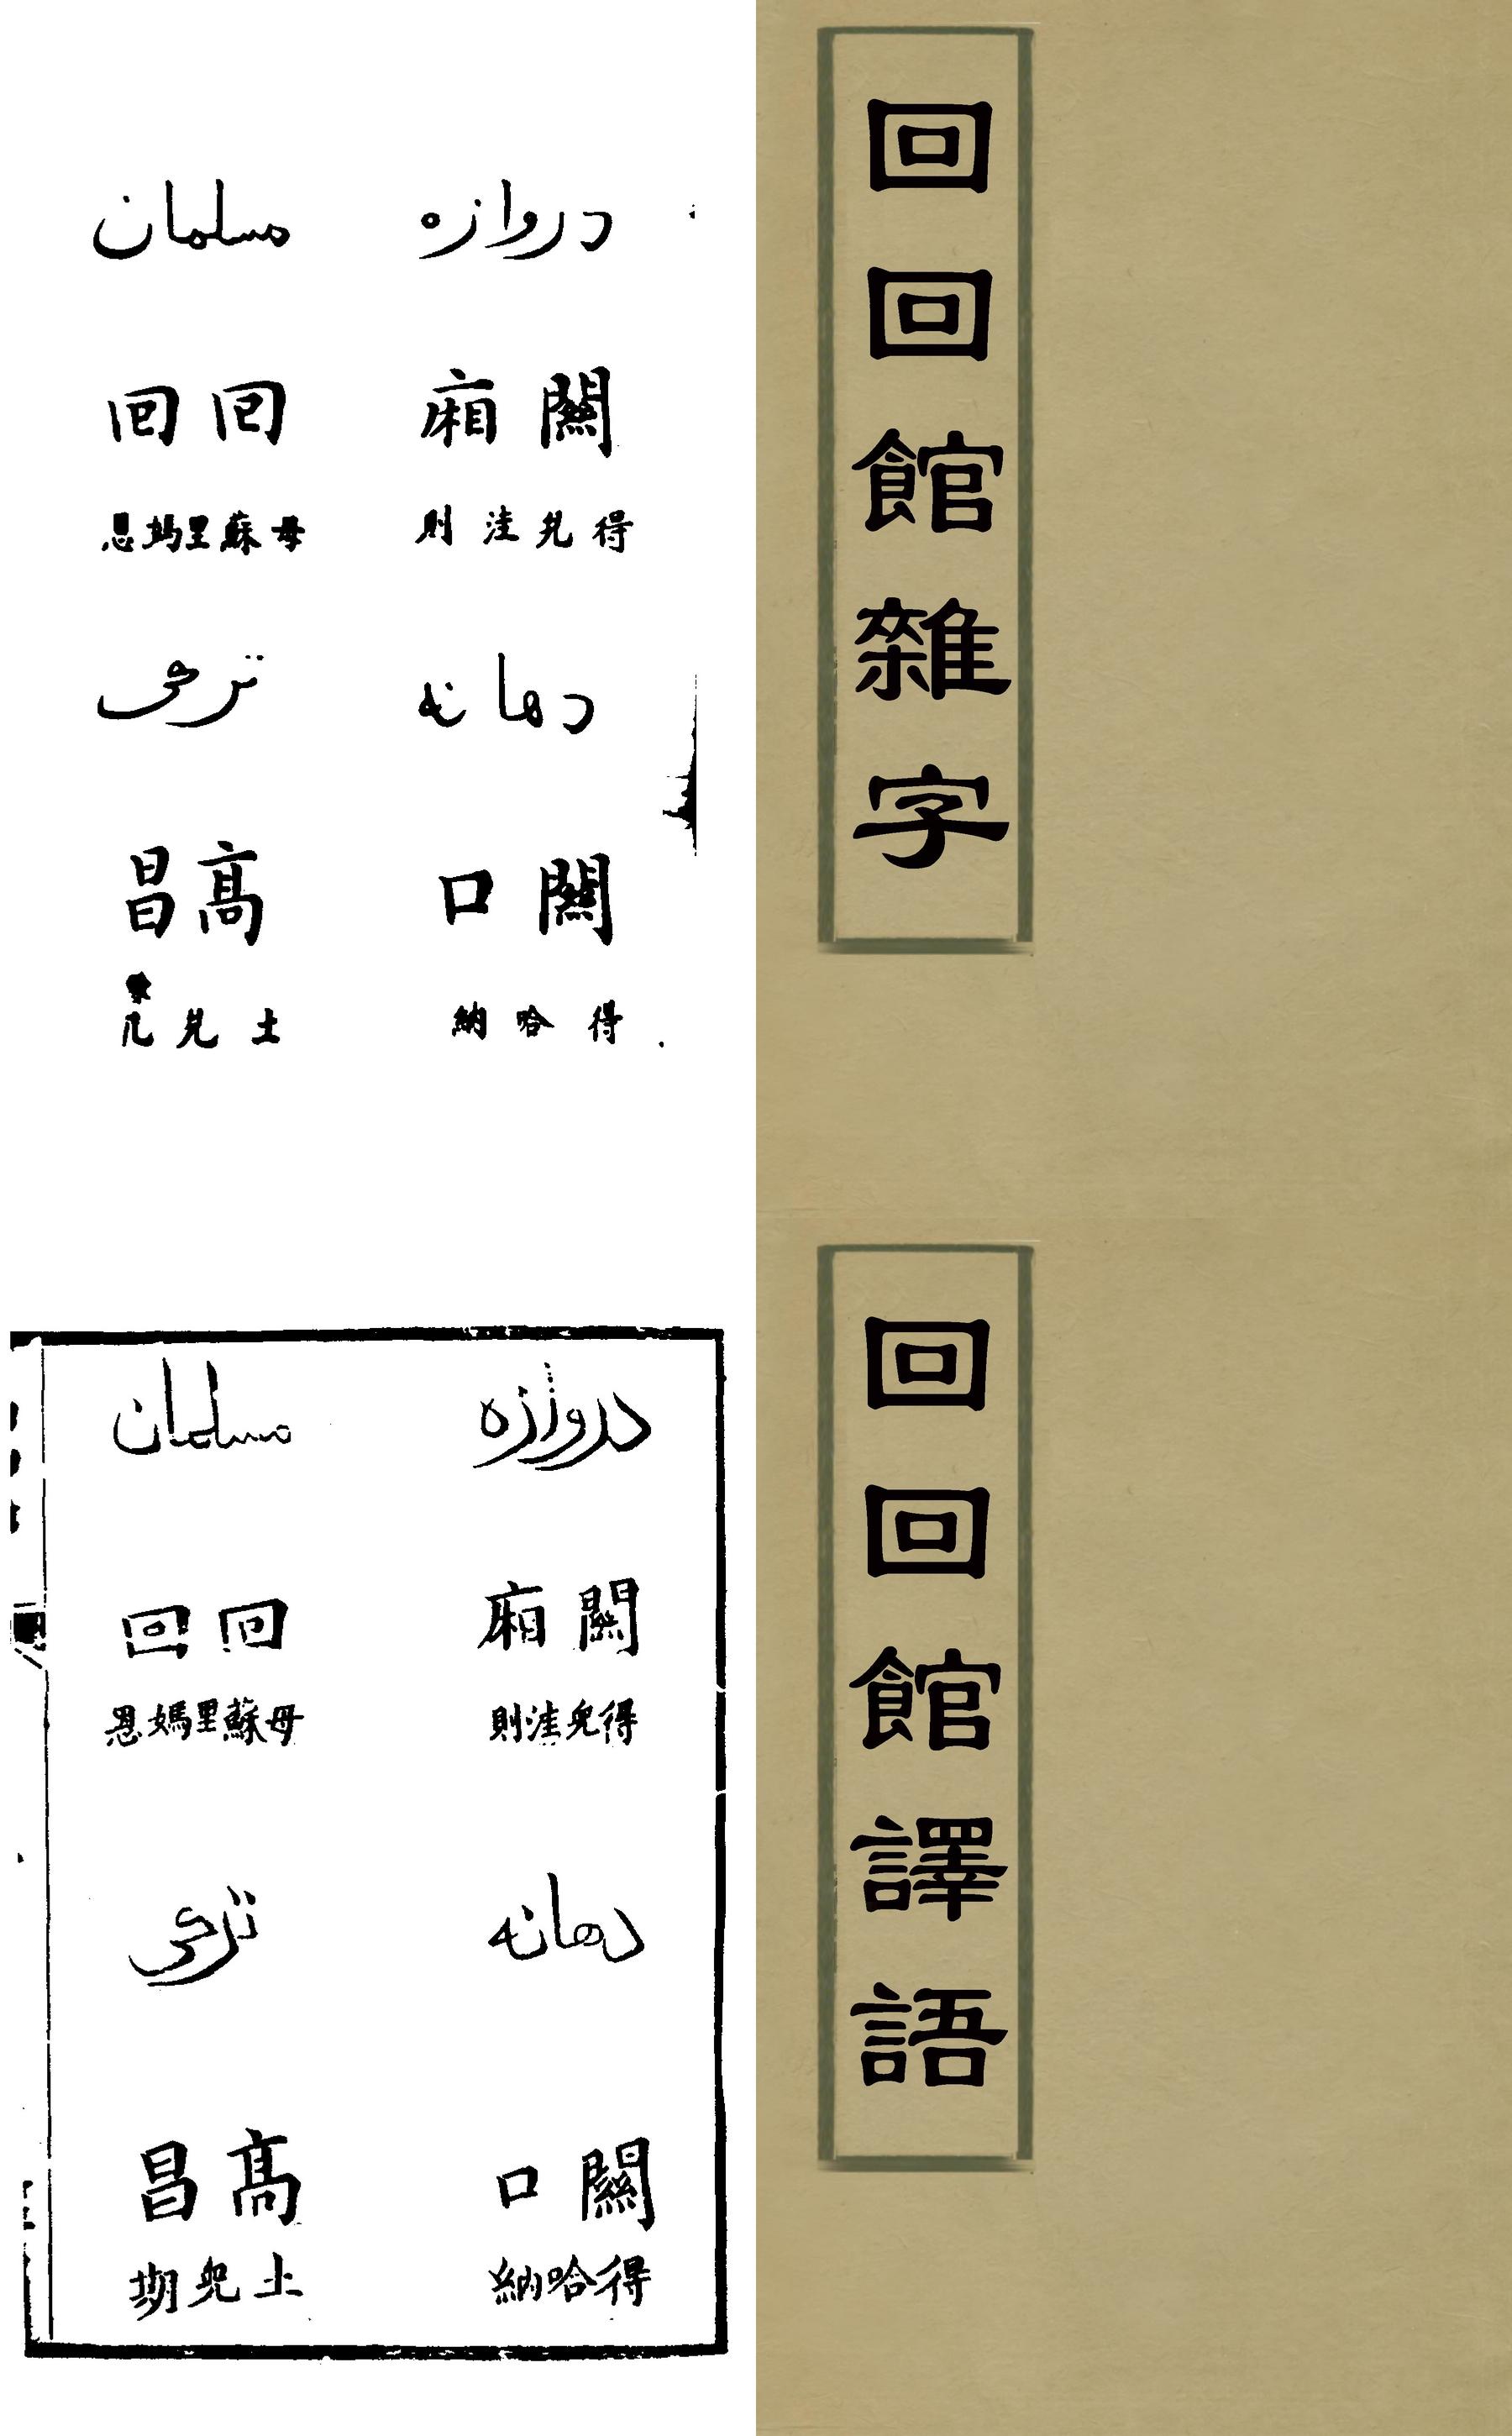 回回館雜字
دروازه
關廂
得兒洼則
دهانه
關口
得哈納
مسلمان
回回
母蘇里媽恩
髙昌
土兒
回回館譯語
دروازه
關廂
得兒洼則
دهانه
關口
得哈納
مسلمان
回回
母蘇里媽恩
髙昌
土兒